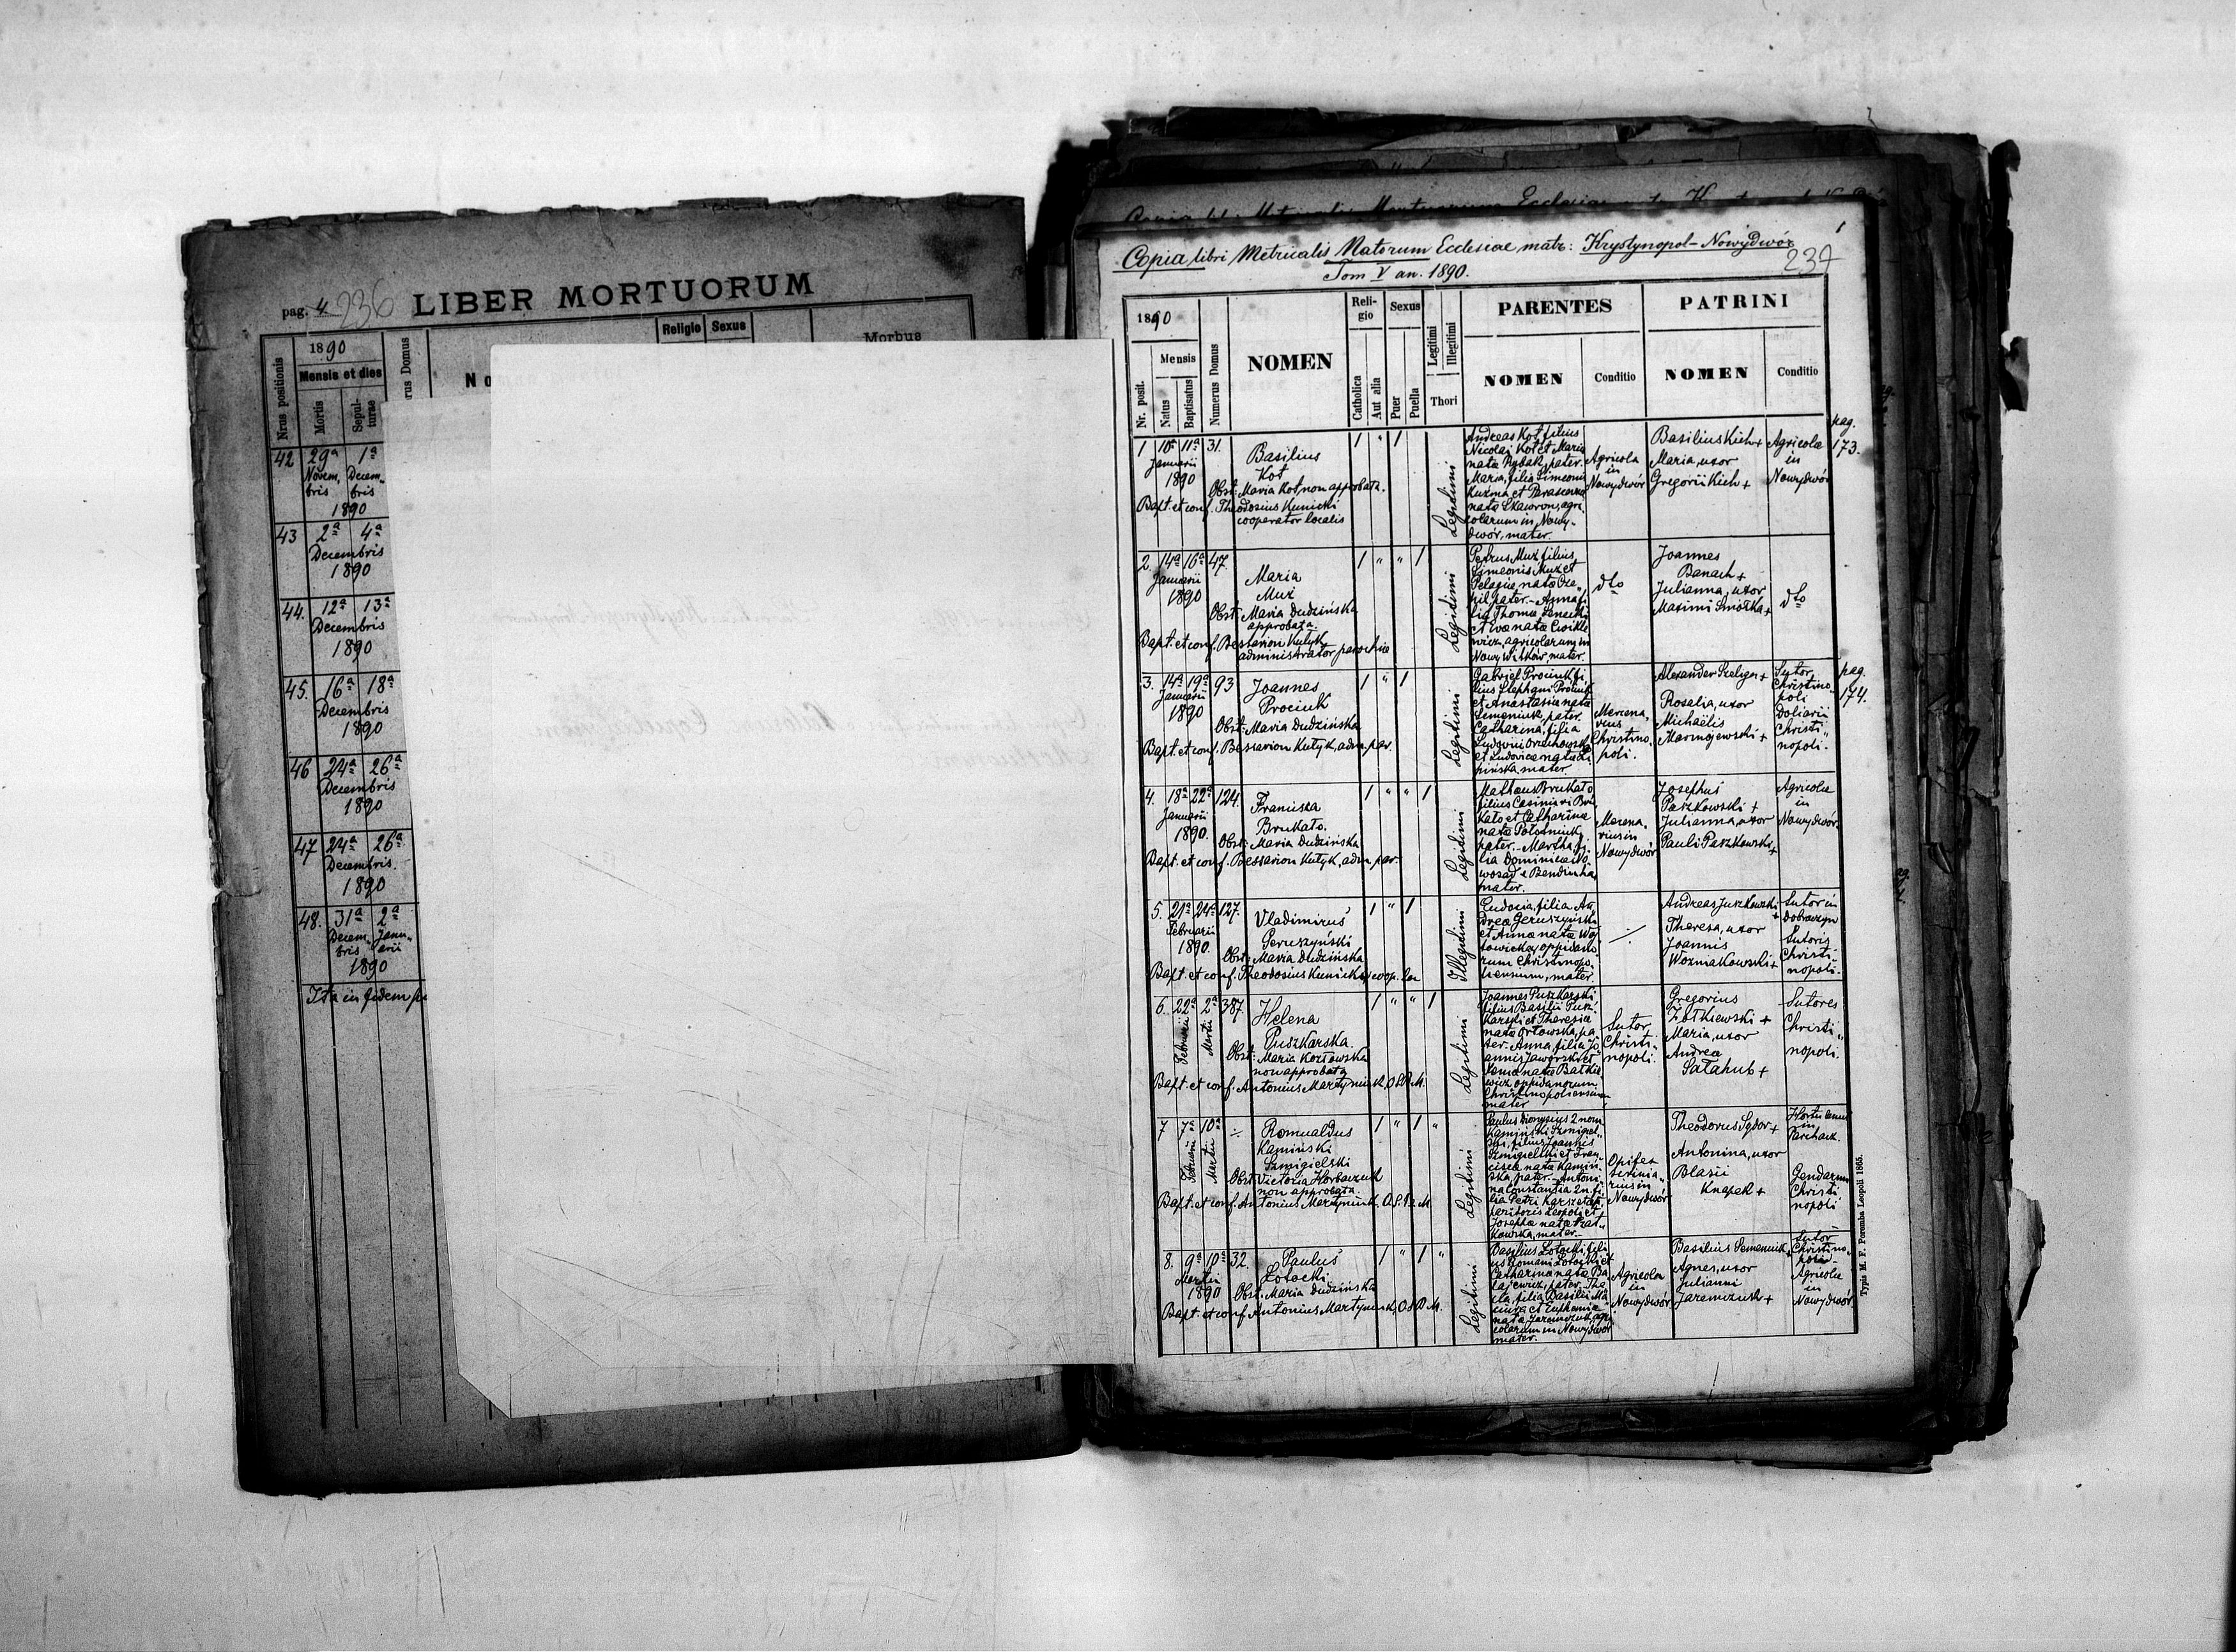 pag. 4. 236 LIBER MORTUORUM
Nrus positionis
1890
Mensis et dies
Mortis
Sepulturae
rus Domus
No
Religio
Sexus
Morbus
42 29ª 1ª
Novem, Decem„
bris bris
1890
43 2ª 4ª
Decembris
1890
44. 12ª 13ª
Decembris
1890
45. 16ª 18ª
Decembris
1890
46 24ª 26ª
Decembris
1890
47 24ª 26ª
Decembris.
1890
48. 31ª 2ª
Decem„ Janu„
bris arii
1890
Ita in fidem
1
Copia libri Metricalis Natorum Ecclesiae matr: Krystynopol-Nowydwór
237
Tom V an. 1890.
1890
Nr. posit.
Mensis
Natus
Baptisatus
Numerus Domus
NOMEN
Religio
Catholica
Aut alia
Sexus
Puer
Puella
Legitimi
Illegitimi
Thori
PARENTES
NOMEN
Conditio
PATRINI
NOMEN
Conditio
1 10ª 11ª 31.
Januarii
1890
Basilius
Kot
Obst: Maria Kot, non approbata.
Bapt. et conf. Theodosius Kunicki
cooperator localis
1 " 1
Legitimi
Andreas Kot filius
Nicolai Kot et Maria
nata Rybak, pater.
Maria, filia Simeonis
Kuzma et Parascewa
nata Skawron, agri
colarum in Nowy-
dwór, mater.
Agricola
in
Nowydwór
Basilius Kich +
Maria, uxor
Gregorii Kich +
Agricolae
in
Nowydwór
pag.
173.
2. 14ª 16ª 47.
Januarii
1890
Maria
Muż
Obst: Maria Dudzińska
approbata.
Bapt. et conf. Bessarion Kutyk
administrator parochiae
1 " " 1
Legitimi
Petrus Muż filius
Simeonis Muż et
agricolarum in
Nowy Witków mater.
dto
Joannes
Banach +
Julianna, uxor
Maximi Smółka +
dto
3. 14ª 19ª 93
Januarii
1890
Joannes
Prociuk
Obst: Maria Dudzińska
Bapt. et conf. Bessarion Kutyk, adm. par.
1 " 1
Legitimi
Gabriel Prociuk fi
lius Stephani Prociuk
et Anastasia nata
Semeniuk, pater.
Catharina, filia
mater.
Mercena„
rius
Christino„
poli.
Alexander Szeliga +
Rosalia, uxor
Michaëlis
Sutor
Christino„
poli
Doliarii
Christi„
nopoli.
pag.
174.
4. 18ª 22ª 124.
Januarii
1890.
Francisca
Brukato.
Obst: Maria Dudzińska
Bapt. et conf. Bessarion Kutyk, adm. par.
1 " " 1
Legitimi
filius Casimiri Bru
kato et Catharina
pater. - Martha fi„
lia Dominica
mater.
Mercena„
rius in
Nowydwór
Josephus
Paszkowski +
Julianna, uxor
Pauli Paszkowski +
Agricolae
in
Nowydwór.
5. 21ª 24ª 127.
Februarii
1890.
Vladimirus
Geruszyński
Obst: Maria Dudzińska
Bapt. et conf. Theodosius Kunicki, coop. loc
1 " 1
Illegitimi
Eudocia, filia An
drea Geruszyński
et Anna nata Woj
towicka, oppidano
rum Christinopo
liensium, mater.
÷
Andreas Juszkowski +
Theresa, uxor
Joannis
Woźniakowski +
Sutor in
Dobraczyn
Sutoris
Christi„
nopoli.
6. 22ª 2ª 387.
Februarii
Martii
Helena
Puszkarska.
Obst: Maria Kozłowska
non approbata
Bapt. et conf. Antonius Martyniuk, O.S.B.M.
1 " " 1
Legitimi
Joannes Puszkarski
filius Basilii Pusz
karski et Theresia
nata Orłowska, pa
ter. Anna, filia Jo
annis Jaworski et
oppidanorum
Christinopoliensium,
mater
Sutor
Christi„
nopoli.
Gregorius
Żółkiewski +
Maria, uxor
Andrea
Sałahub +
Sutores
Christi„
nopoli.
7 7ª 10ª ÷
Februarii
Martii
Romualdus
Kamiński
Szmigielski
Obst: Victoria Horbaczuk
non approbata
Bapt. et conf. Antonius Martyniuk. O.S.B.M
1 " 1 "
Legitimi
Paulus Dionysius 2 nom.
Kamiński Szmigiel„
ski, filius Joannis
Szmigielski et Fran
cisca nata Kamiń„
ska, pater. - Antoni
na Constantia 2 n. fi
lia Petri
Leopoli et
Josepha nata
mater.
Opifex
in
Nowydwór
Theodorus Sydor +
Antonina, uxor
Blasii
Knapek +
Hortulanus
in
Parchacz.
Gendarmi
Christi
nopoli
8. 9ª 10ª 32.
Martii
1890
Paulus
Łotocki
Obst: Maria Dudzińska
Bapt. et conf. Antonius Martyniuk, O.S.B.M.
1 " 1 "
Legitimi
Basilius Łotocki fili
us Romani Łotocki et
Catharina nata Ba
łajewicz, pater. The
cla, filia Basilii
et Euphemia
nata Jaremczuk, agri
colarum in Nowydwór
mater.
Agricola
in
Nowydwór
Basilius Semeniuk +
Agnes, uxor
Julianni
Jaremczuk +
Sutor
Christino„
poli
Agricolae
in
Nowydwór
Typis M. F. Poremba Leopoli 1885.